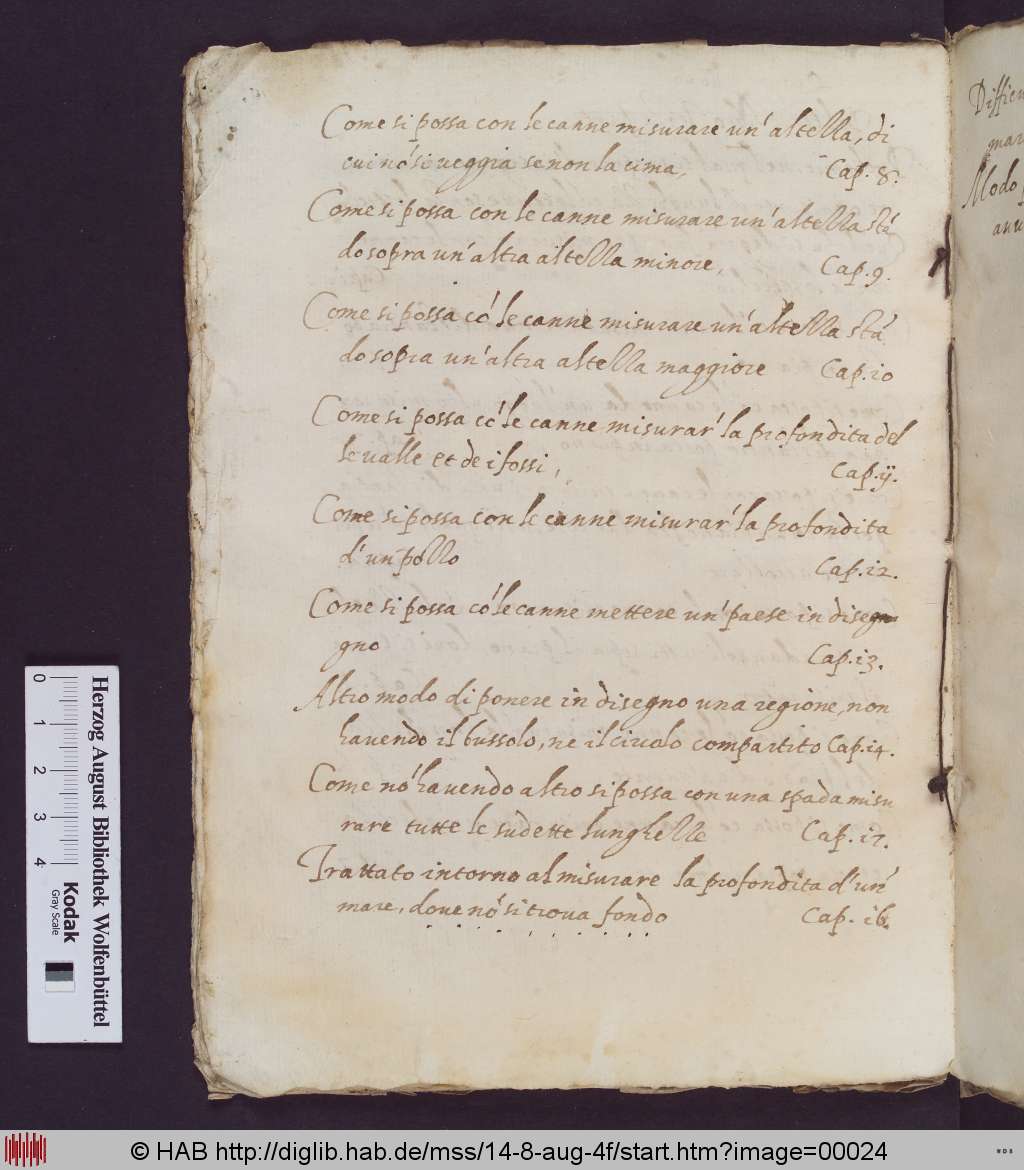 Come si possa con le canne misurare un'altezza, di
cui nō si veggia se non la cima, Cap. 8.
Come si possa con le canne misurare un'altezza stā
do sopra un'altra altezza minore, Cap. 9.
Come si possa cō le canne misurare un'altezza stā
do sopra un'altra altezza maggiore Cap. 10
Come si possa cō le canne misurar' la profondita del
le valle et de i fossi, Cap. ij.
Come si possa con le canne misurar' la profondita
d'un pozzo Cap. 12.
Come si possa cō le canne mettere un' paese in disegn
gno Cap. 13.
Altro modo di ponere in disegno una regione, non
havendo il bussolo, ne il circolo compartito Cap. 14.
Come nō havendo altro si possa con una spada misu
rare tutte le sudette lunghezze Cap. 15.
Trattato intorno al misurare la profondita d'un'
mare, dove nō si trova fondo Cap. 16.
Modo
0 1 2 3 4
Herzog August Bibliothek Wolfenbüttel
Kodak
Gray Scale
© HAB http://diglib.hab.de/mss/14-8-aug-4f/start.htm?image=00024